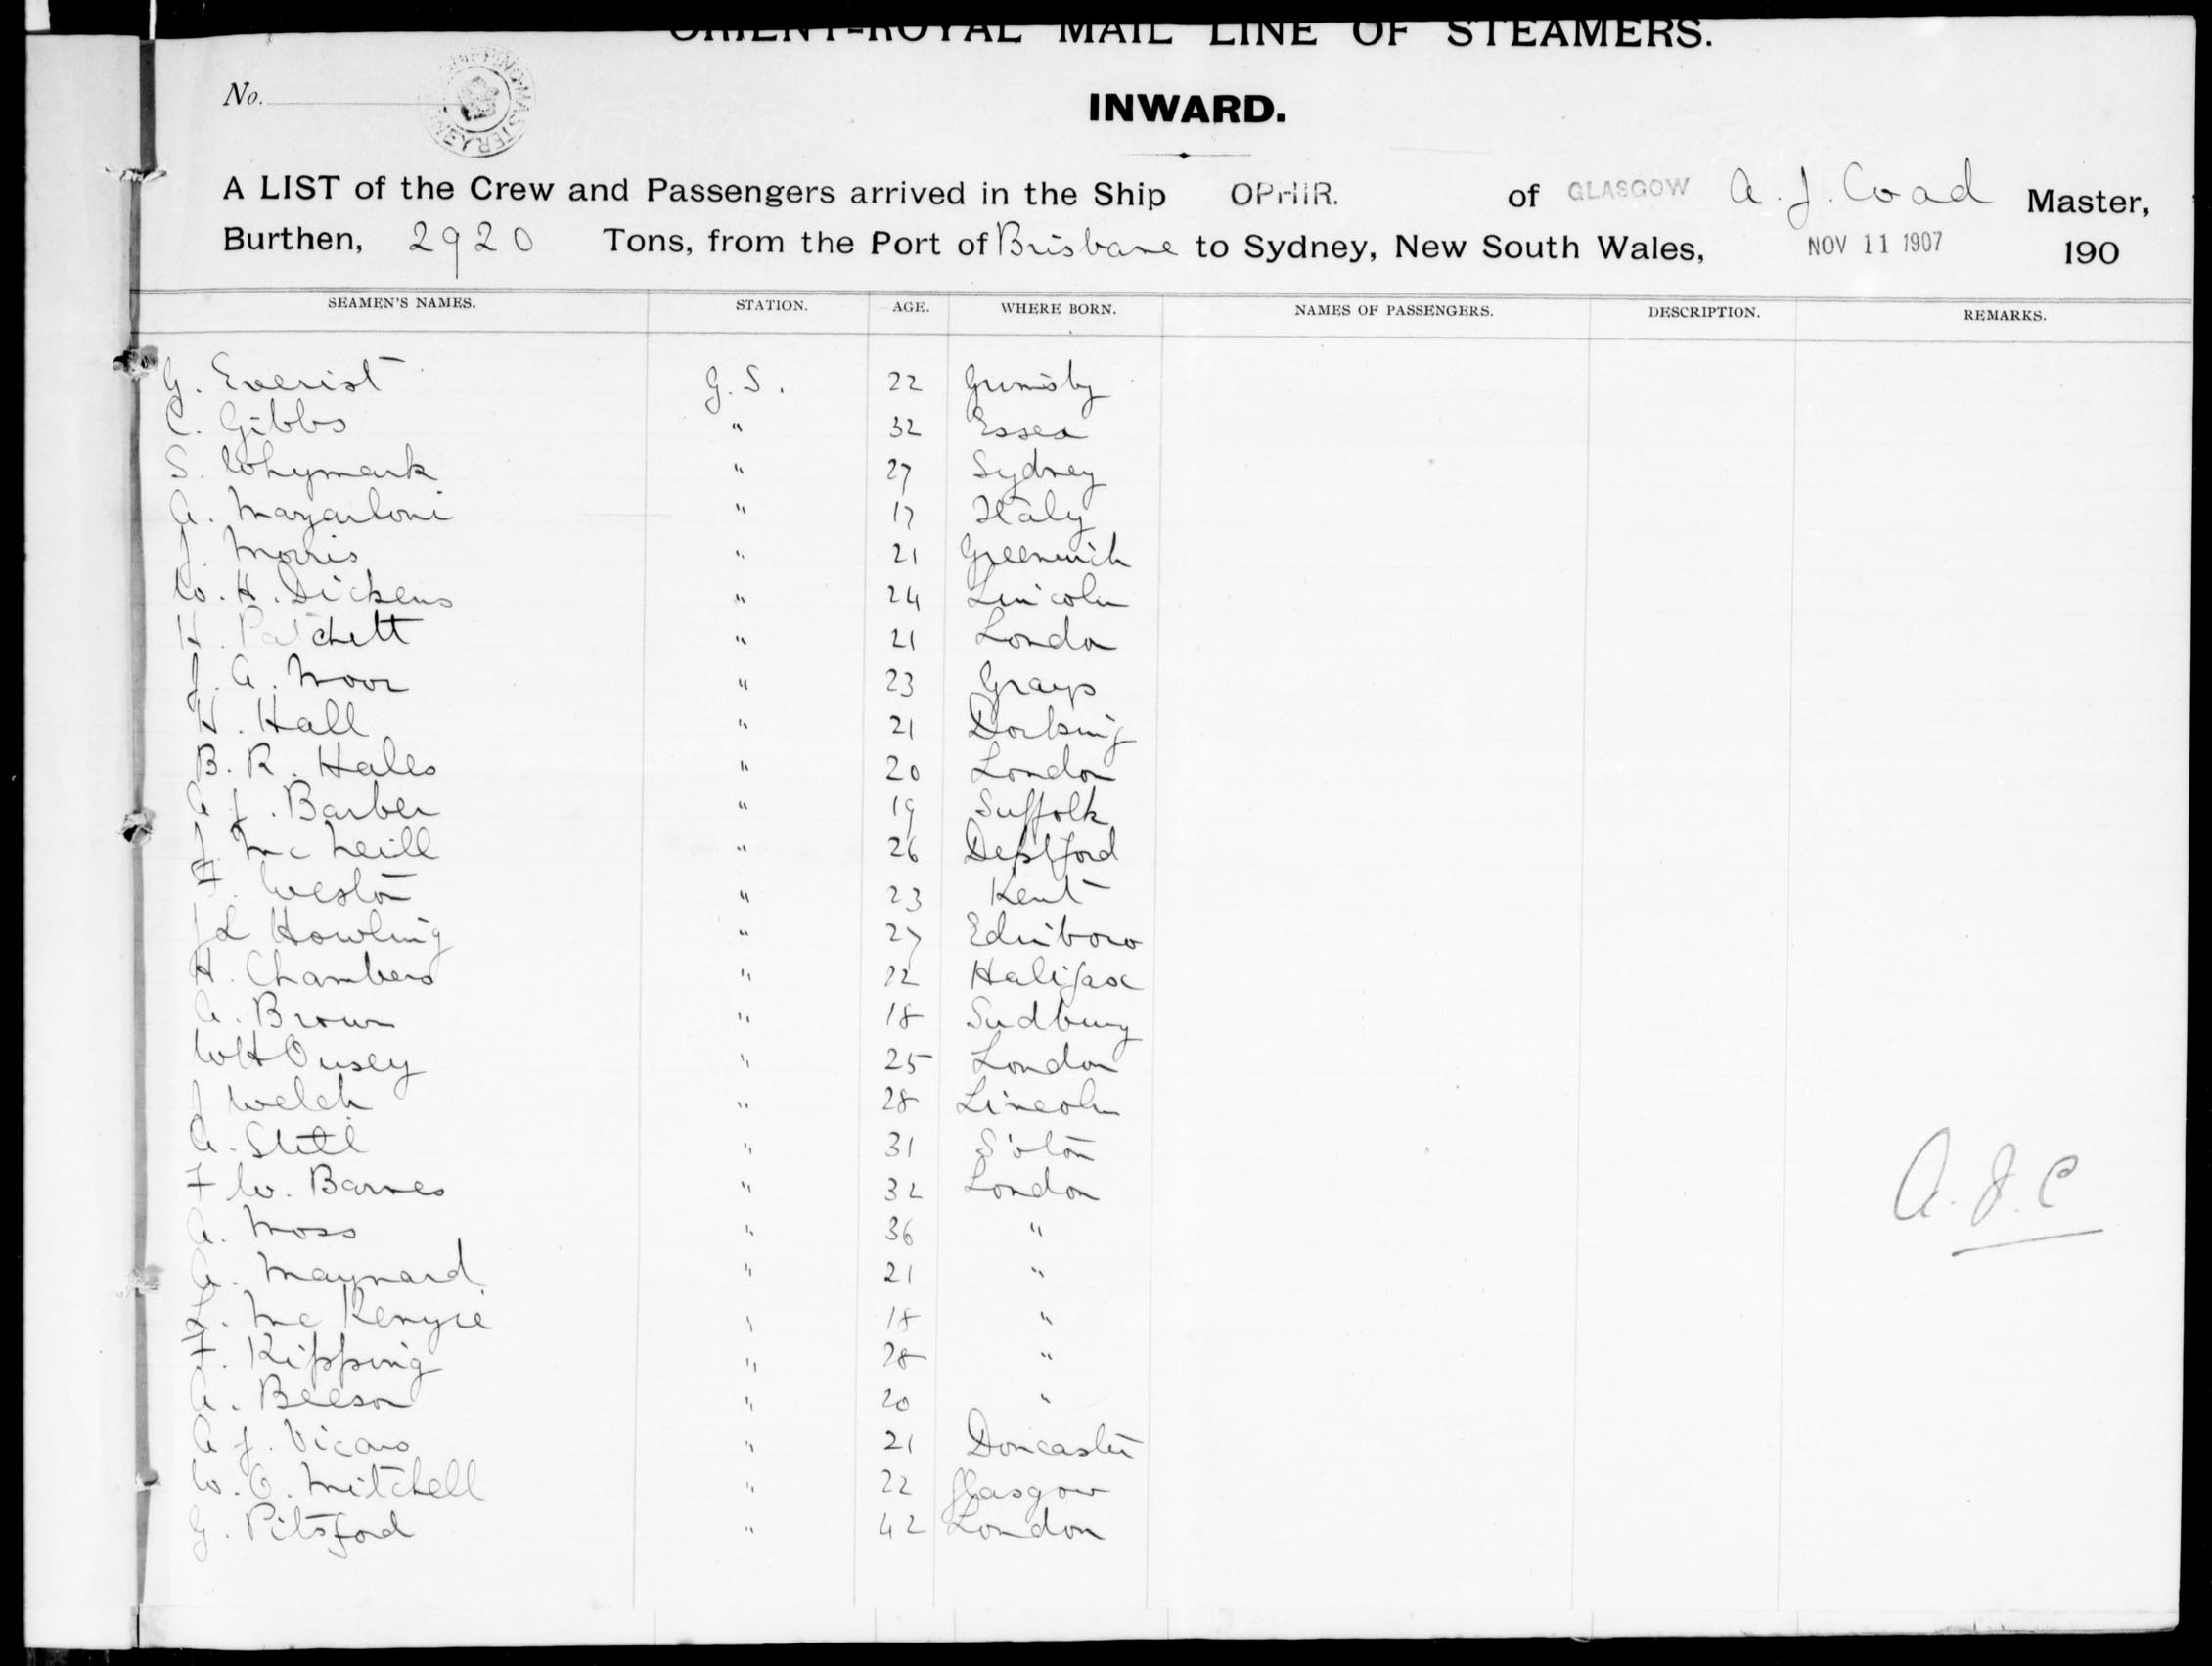 ORIENT-ROYAL MAIL LINE OF STEAMERS.
No.
INWARD.
A LIST of the Crew and Passengers arrived in the Ship OPHIR. of GLASGOW A. J. Coad Master,
Burthen, 2920 Tons, from the Port of Brisbane to Sydney, New South Wales, NOV 11 1907 190
SEAMEN'S NAMES. STATION. AGE. WHERE BORN. NAMES OF PASSENGERS. DESCRIPTION. REMARKS.
G. Everist G. S. 22 Grimsby
C. Gibbs " 32 Essex
S. Whymark " 27 Sydney
A. " 17 Italy
J. Morris " 21 Greenwich
W. H. Dickens " 24 Lincoln
H. Patchett " 21 London
J. A. Moor " 23 Grays
H. Hall " 21 Dorking
B. R. Hales " 20 London
A J. Barber " 19 Suffolk
J. McNeill " 26 Deptford
H. Weston " 23 Kent
J L Howling " 27 Edinboro
H. Chambers " 22 Halifax
A. Brown " 18 Sudbury
W H Ousey " 25 London
J Welch " 28 Lincoln
A. " 31 S'oton
F W. Barnes " 32 London
A. Moss " 36 "
A. Maynard " 21 "
L. McKenzie " 18 "
F. Kipping " 28 "
A. Beeson " 20 "
A J. Vicars " 21 Doncaster
W. O. Mitchell " 22 Glasgow
G. Pitsford " 42 London
A. J. C